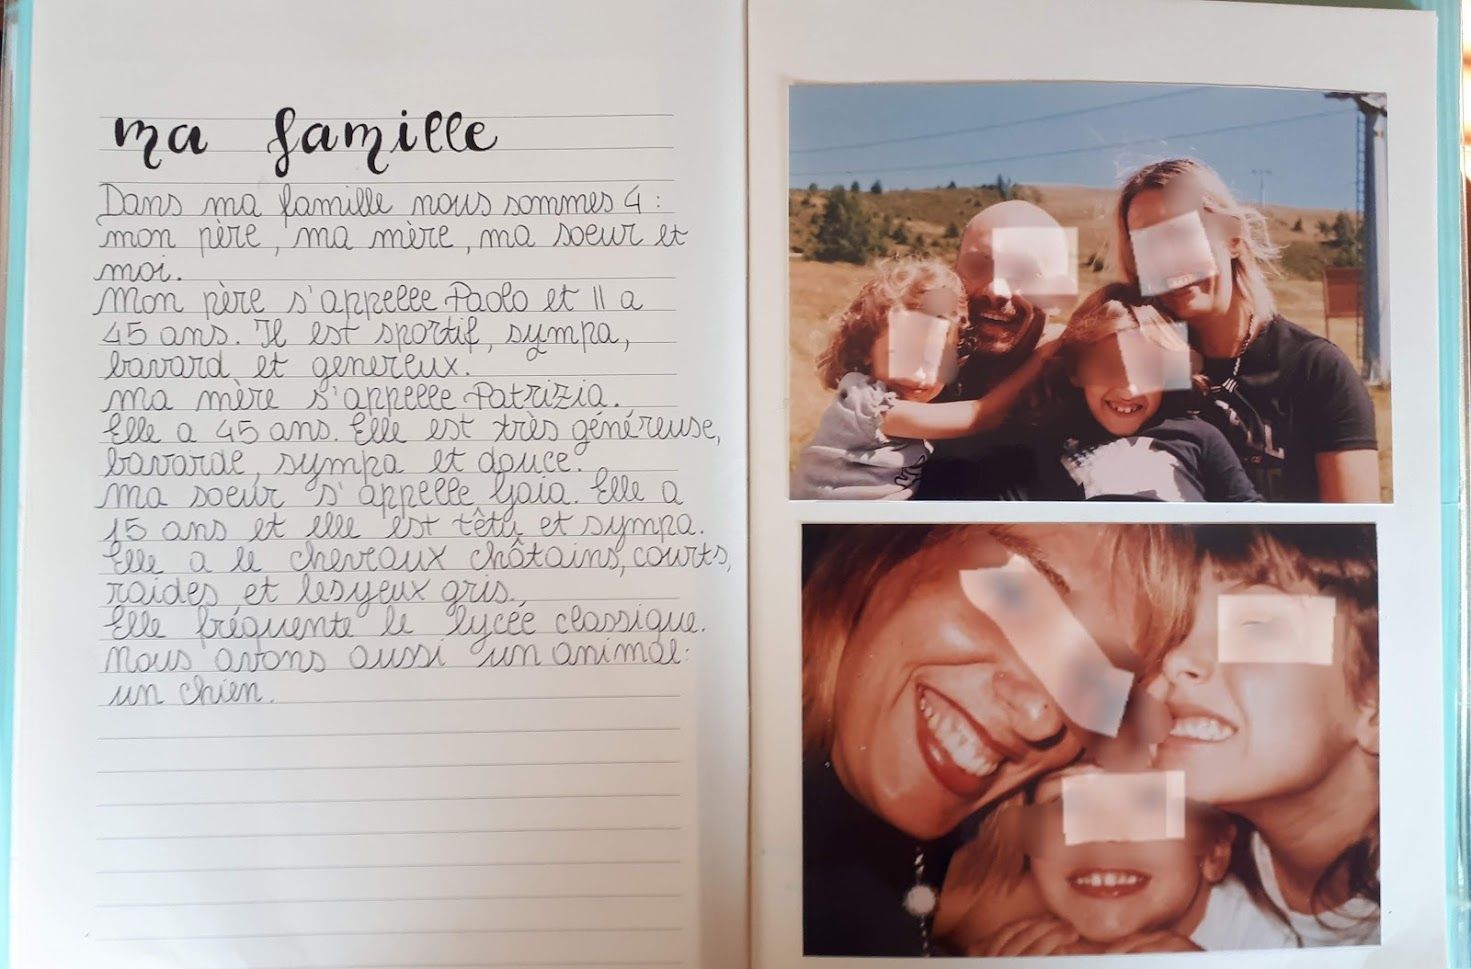 ma famille
Dans ma famille nous sommes 4 :
mon père, ma mère, ma soeur et
moi.
Mon père s'appelle Paolo et Il a
45 ans. Il est sportif, sympa,
bavard et genereux.
ma mère s'appelle Patrizia.
Elle a 45 ans. Elle est très généreuse,
bavarde, sympa et douce.
ma soeur s'appelle Gaia. Elle a
15 ans et elle est têtu et sympa.
Elle a le chevraux châtains, courts,
raides et les yeux gris.
Elle fréquente le lycée classique.
Nous avons aussi un animal:
un chien.